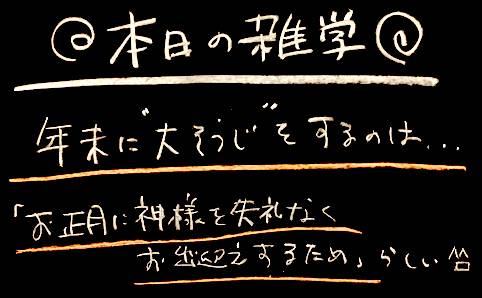 @本日の雑学@
年末に"大そうじ"をするのは...
「お正月に神様を失礼なく
お出迎えするため」らしい